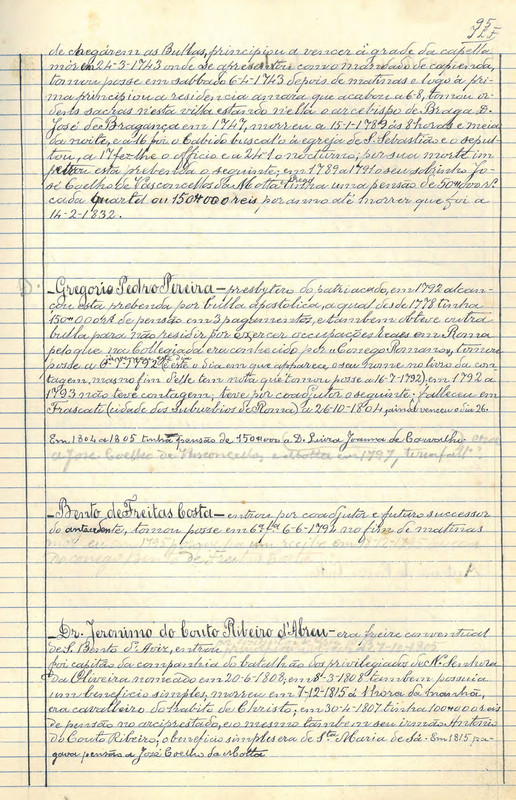 95
de chegárem as Bullas, principiou a vencer à grade da capella
mór em 24-3-1743 onde se apresentou como mandado de capienda,
tomou posse em sabbado 6-4-1743 depois de matinas e logo à pri-
ma principiou a residencia amara que acabou a 6-8, tomou or-
dens sacras n'esta villa estando n'ella o arcebispo de Braga D.
José de Bragança em 1747, morreu a 15-1-1789 ás 8 horas e meia
da noite, e a 16 foi o Cabido buscal-o à egreja de S. Sebastião e o sepul-
tou, a 17 fez-lhe o officio e a 24 o 1.º nocturno; por sua morte im-
petrou esta prebenda o seguinte; em 1789 a 1791 o seu sobrinho Jo-
sé Coelho de Vasconcellos da Motta Prego tinha uma pensão de 50#000 rs
cada quartel ou 150#000 reis por anno até morrer que foi a
14-2-1832.
D. Gregorio Pedro Pereira - presbytero do patriarcado, em 1792 alcan-
çou esta prebenda por bulla apostolica, a qual desde 1778 tinha
150#000 rs de pensão em 3 pagamentos, e tambem obteve outra
bulla para não residir por exercer occupações Reaes em Roma
pelo que na Collegiada era conhecido por "Conego Romano", tomou
posse a (este o dia em que apparece o seu nome no livro da con-
tagem, mas no fim d'elle tem nota que tomou posse a 16-7-1792), em 1792 a
1793 não teve contagem, teve por coadjutor o seguinte: falleceu em
Frascati (cidade dos suburbios de Roma) a 26-10-1804, ainda venceu o dia 26.
Em 1804 a 1805 tinha pensão de 150#000 a D. Luiza Joanna de Carvalho
a José Coelho de Vasconcellos e Motta em 1797,
Bento de Freitas Costa - entrou por coadjutor e futuro successor
do antecedente, tomou posse em 6ª fª 6-6-1794 no fim de matinas
Dr. Jeronimo do Couto Ribeiro d'Abreu - era freire conventual
de S. Bento d'Aviz, entrou
foi capitão da companhia do batalhão dos privilegiados de N. Senhora
da Oliveira nomeado em 20-6-1808, em 8-3-1808 tambem possuia
um beneficio simples, morreu em 7-12-1815 á 1 hora da manhã,
era cavalleiro do habito de Christo; em 30-4-1807 tinha 100#000 reis
de pensão no arciprestado, e o mesmo tambem seu irmão Antonio
do Couto Ribeiro; o beneficio simples era de Sta Maria de Sá. Em 1815 pa-
gava pensão a José Coelho da Motta